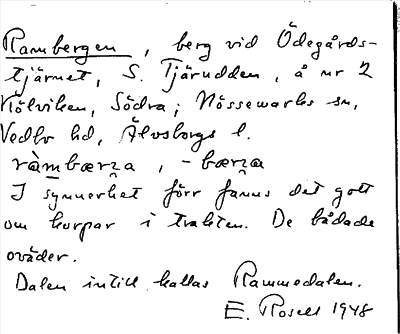 Rambergen, berg vid Ödegårds-
tjärnet, S. Tjärudden, å nr 2
Kölviken, Södra; Nössemarks sn,
Vedbo hd, Älvsborgs l.
ràmbærꞃa, -bærꞃa
I synnerhet förr fanns det gott
om korpar i trakten. De bådade
oväder.
Dalen intill kallas Rammedalen.
E. Rosell 1948